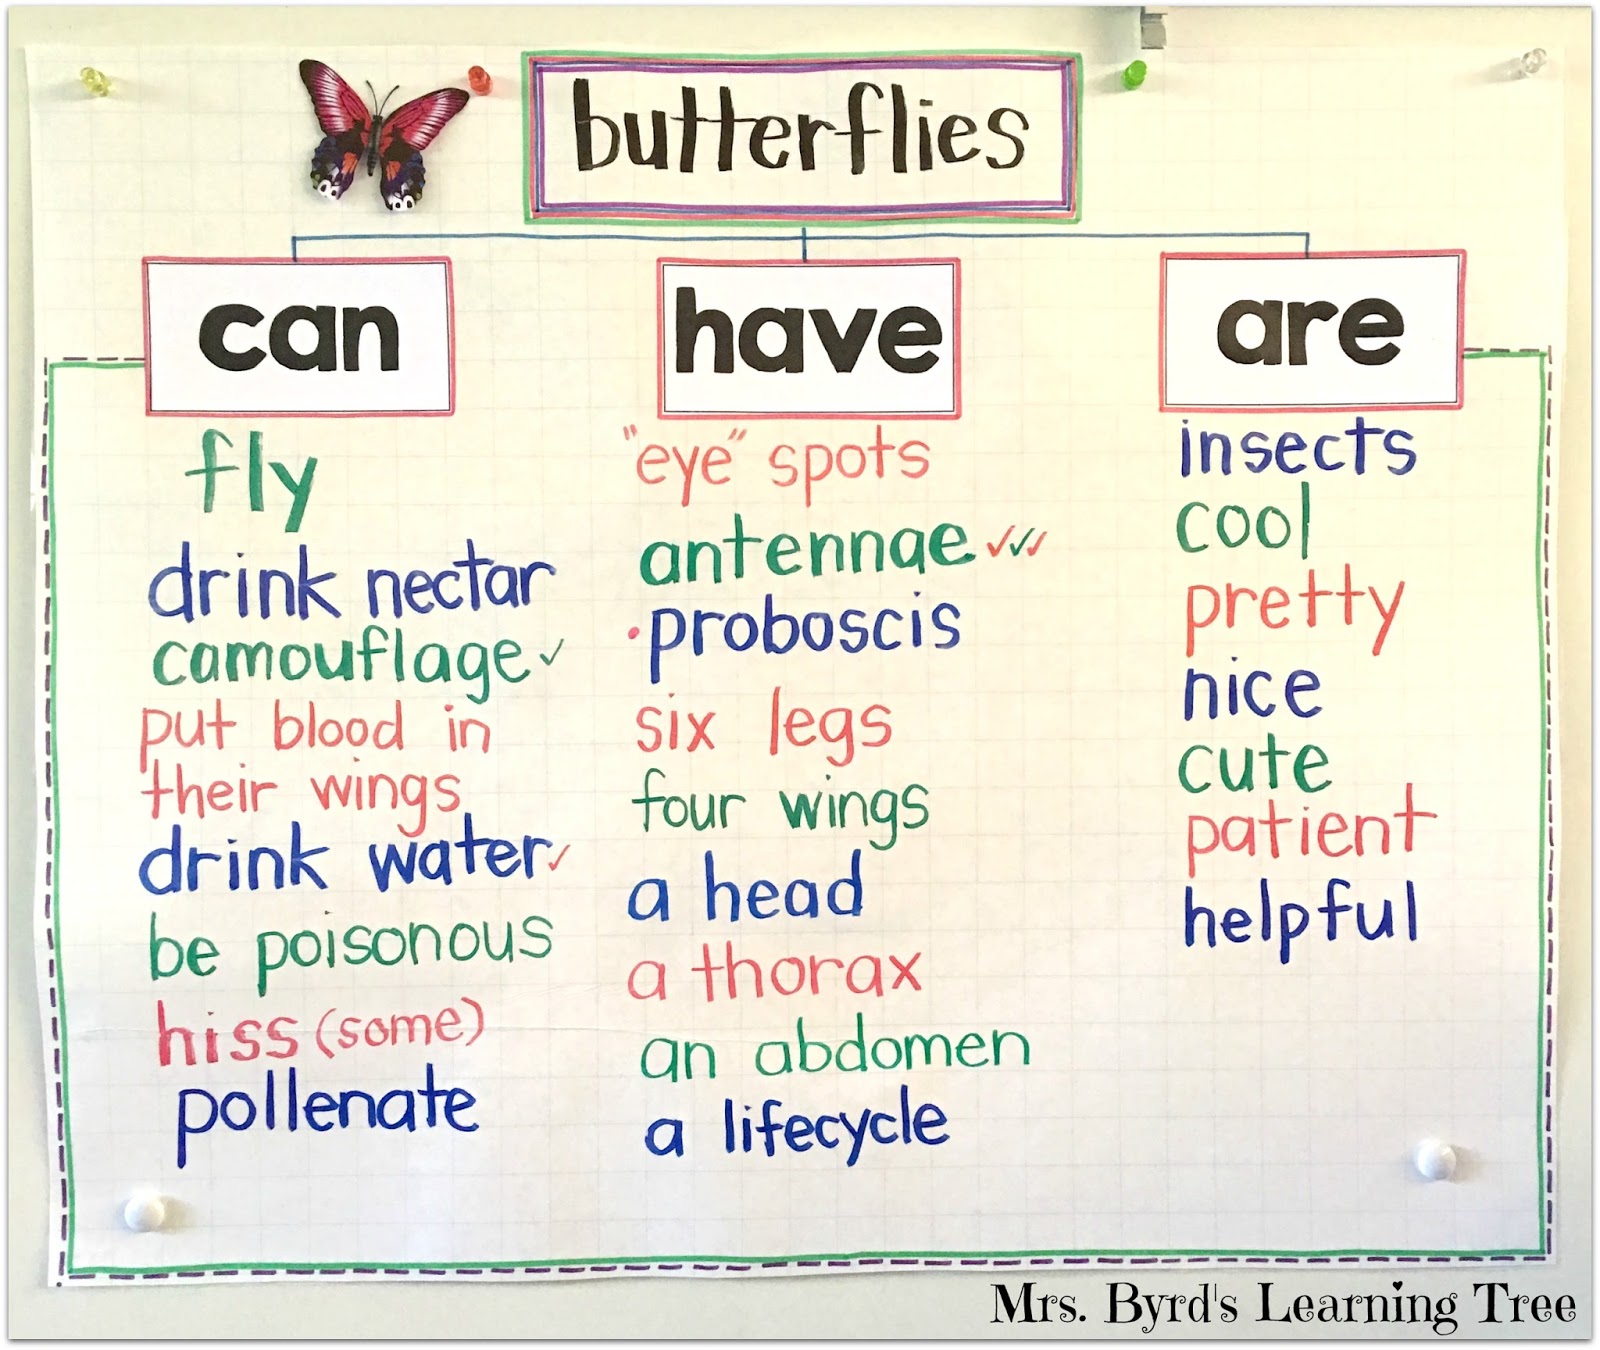 butterflies
can
fly
drink nectar
camouflage
put blood in
their wings
drink water
be poisonous
hiss (some)
pollenate
have
"eye" spots
antennae
proboscis
six legs
four wings
a head
a thorax
an abdomen
a lifecycle
are
insects
cool
pretty
nice
cute
patient
helpful
Mrs. Byrd's Learning Tree